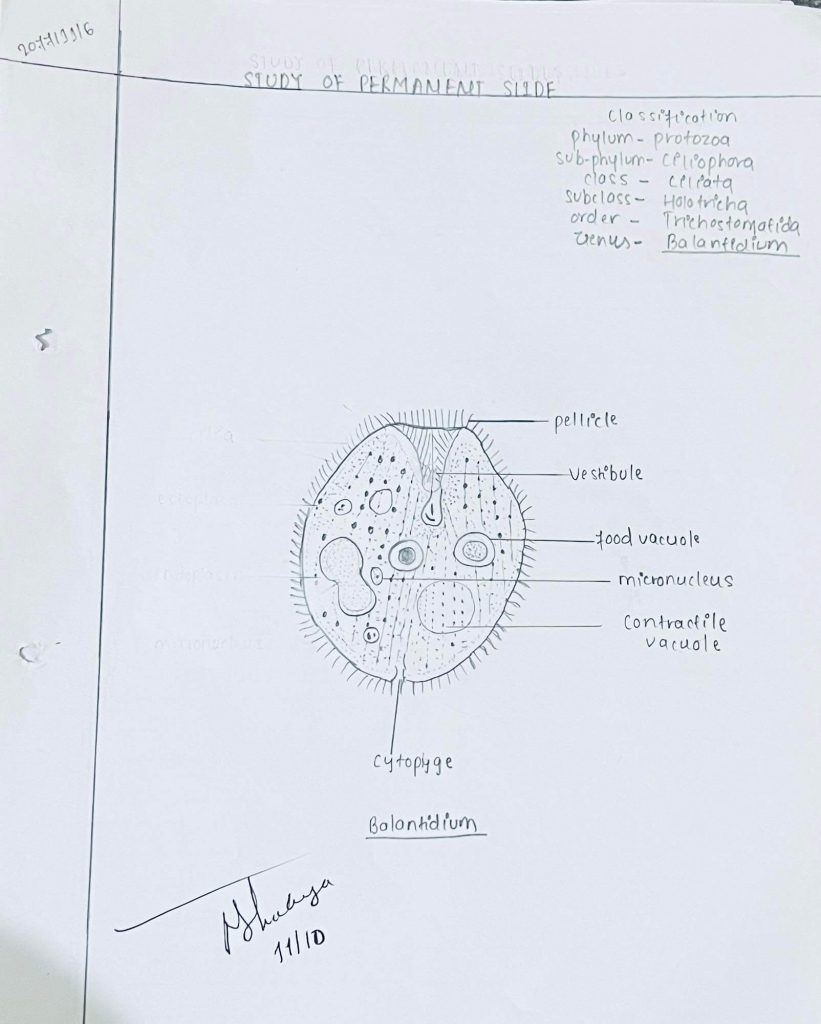 2077/11/6
STUDY OF PERMANENT SLIDE
Classification
phylum - protozoa
sub-phylum - Ciliophora
class - Ciliata
subclass - Holotricha
order - Trichostomatida
Genus - Balantidium
pellicle
vestibule
food vacuole
micronucleus
contractile
vacuole
cytopyge
Balantidium
11/10